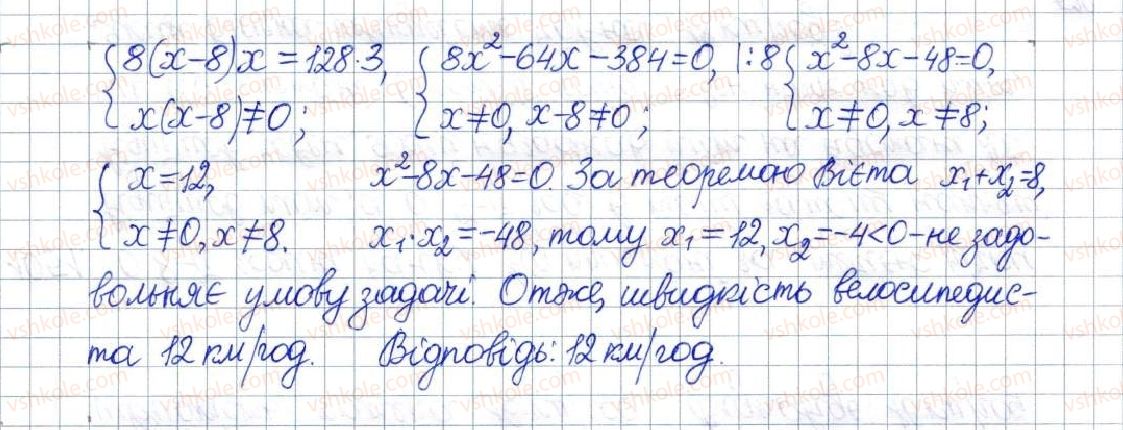 {8(x-8)x=128·3, {8x²-64x-384=0, |:8 {x²-8x-48=0,
x(x-8)≠0; x≠0, x-8≠0; x≠0, x≠8;
{x=12, x²-8x-48=0. За теоремою Вієта x₁+x₂=8,
x≠0, x≠8. x₁·x₂=-48, тому x₁=12, x₂=-4<0-не задо-
вольняє умову задачі. Отже, швидкість велосипедис-
та 12 км/год. Відповідь: 12 км/год.